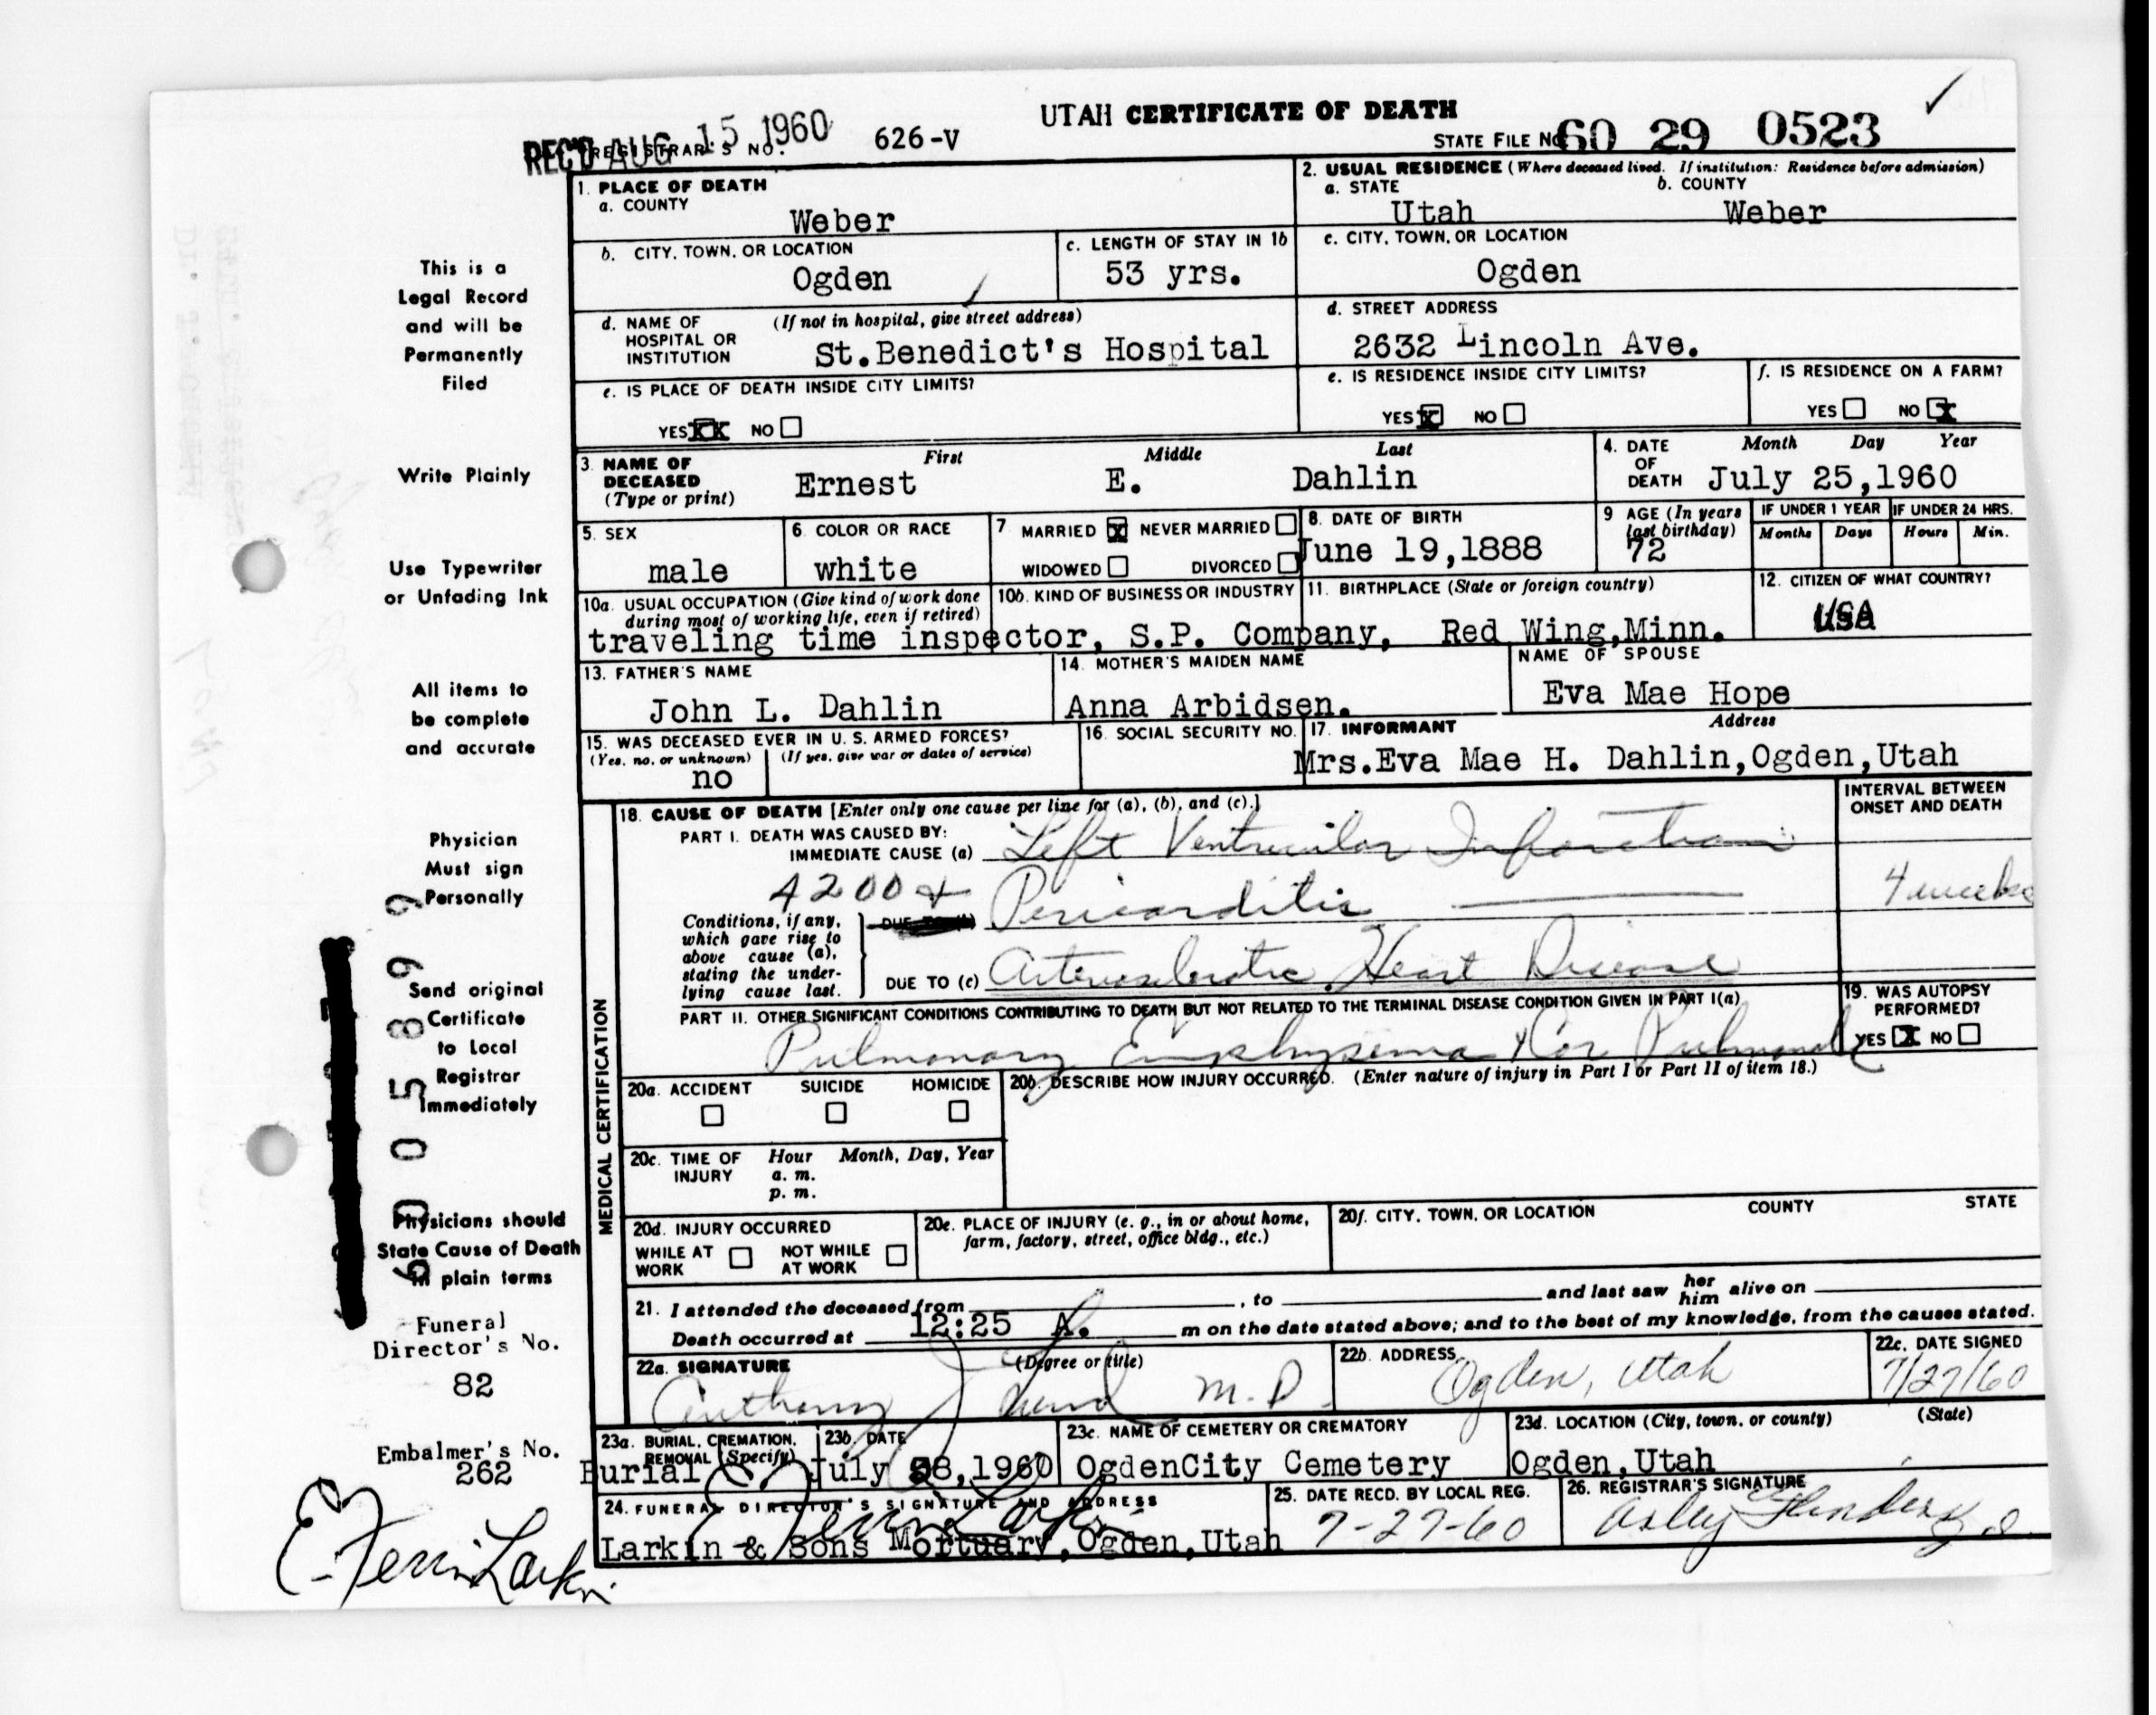 UTAH CERTIFICATE OF DEATH
REC'D AUG 15 1960 REGISTRAR'S NO. 626-V STATE FILE NO. 60 29 0523
1. PLACE OF DEATH
a. COUNTY
Weber
2. USUAL RESIDENCE (Where deceased lived. If institution: Residence before admission)
a. STATE b. COUNTY
Utah Weber
b. CITY, TOWN, OR LOCATION
Ogden
c. LENGTH OF STAY IN 1b
53 yrs.
c. CITY, TOWN, OR LOCATION
Ogden
d. NAME OF HOSPITAL OR INSTITUTION (If not in hospital, give street address)
St.Benedict's Hospital
d. STREET ADDRESS
2632 Lincoln Ave.
e. IS PLACE OF DEATH INSIDE CITY LIMITS?
YES XX NO
e. IS RESIDENCE INSIDE CITY LIMITS?
YES X NO
f. IS RESIDENCE ON A FARM?
YES NO X
3. NAME OF DECEASED (Type or print)
First Middle Last
Ernest E. Dahlin
4. DATE OF DEATH
Month Day Year
July 25,1960
5. SEX
male
6. COLOR OR RACE
white
7. MARRIED X NEVER MARRIED
WIDOWED DIVORCED
8. DATE OF BIRTH
June 19,1888
9 AGE (In years last birthday)
72
IF UNDER 1 YEAR IF UNDER 24 HRS.
Months Days Hours Min.
10a. USUAL OCCUPATION (Give kind of work done during most of working life, even if retired)
10b. KIND OF BUSINESS OR INDUSTRY
11. BIRTHPLACE (State or foreign country)
12. CITIZEN OF WHAT COUNTRY?
traveling time inspector, S.P. Company, Red Wing,Minn. USA
13. FATHER'S NAME
John L. Dahlin
14. MOTHER'S MAIDEN NAME
Anna Arbidsen.
NAME OF SPOUSE
Eva Mae Hope
15. WAS DECEASED EVER IN U. S. ARMED FORCES?
(Yes, no, or unknown) (If yes, give war or dates of service)
no
16. SOCIAL SECURITY NO.
17. INFORMANT Address
Mrs.Eva Mae H. Dahlin,Ogden,Utah
MEDICAL CERTIFICATION
18. CAUSE OF DEATH [Enter only one cause per line for (a), (b), and (c).]
INTERVAL BETWEEN ONSET AND DEATH
PART I. DEATH WAS CAUSED BY:
IMMEDIATE CAUSE (a) Left Ventricular Infarction
4200 + Pericarditis 4 weeks
Conditions, if any, which gave rise to above cause (a), stating the underlying cause last.
DUE TO (b)
DUE TO (c) Arteriosclerotic Heart Disease
PART II. OTHER SIGNIFICANT CONDITIONS CONTRIBUTING TO DEATH BUT NOT RELATED TO THE TERMINAL DISEASE CONDITION GIVEN IN PART I(a)
Pulmonary Emphysema & Cor Pulmonale
19. WAS AUTOPSY PERFORMED?
YES X NO
20a. ACCIDENT SUICIDE HOMICIDE
20b. DESCRIBE HOW INJURY OCCURRED. (Enter nature of injury in Part I or Part II of item 18.)
20c. TIME OF INJURY Hour Month, Day, Year
a. m.
p. m.
20d. INJURY OCCURRED
WHILE AT WORK NOT WHILE AT WORK
20e. PLACE OF INJURY (e. g., in or about home, farm, factory, street, office bldg., etc.)
20f. CITY, TOWN, OR LOCATION COUNTY STATE
21. I attended the deceased from , to and last saw her him alive on
Death occurred at 12:25 A. m on the date stated above; and to the best of my knowledge, from the causes stated.
22a. SIGNATURE (Degree or title)
Anthony J. Lund M.D.
22b. ADDRESS
Ogden, Utah
22c. DATE SIGNED
7/27/60
23a. BURIAL, CREMATION, REMOVAL (Specify)
Burial
23b. DATE
July 28,1960
23c. NAME OF CEMETERY OR CREMATORY
OgdenCity Cemetery
23d. LOCATION (City, town, or county) (State)
Ogden,Utah
24. FUNERAL DIRECTOR'S SIGNATURE AND ADDRESS
E. Ferrin Larkin
Larkin & Sons Mortuary,Ogden,Utah
25. DATE RECD. BY LOCAL REG.
7-27-60
26. REGISTRAR'S SIGNATURE
This is a
Legal Record
and will be
Permanently
Filed
Write Plainly
Use Typewriter
or Unfading Ink
All items to
be complete
and accurate
Physician
Must sign
Personally
Send original
Certificate
to Local
Registrar
Immediately
Physicians should
State Cause of Death
in plain terms
6005899
Funeral
Director's No.
82
Embalmer's No.
262
E. Ferrin Larkin